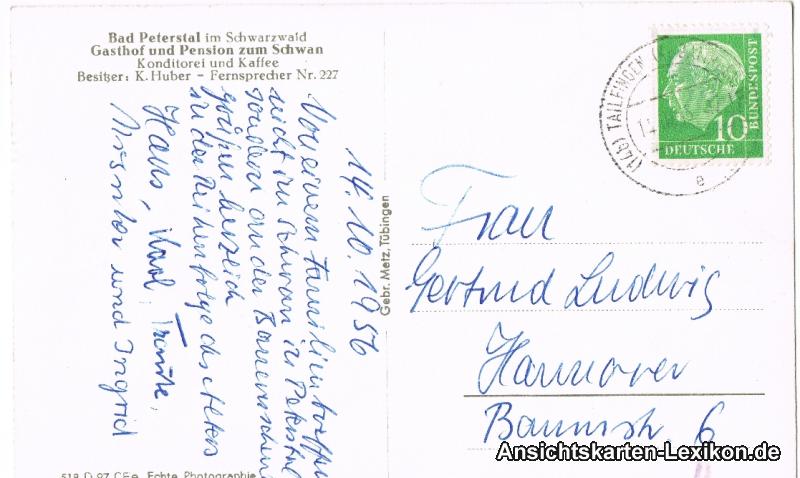 Bad Peterstal im Schwarzwald
Gasthof und Pension zum Schwan
Konditorei und Kaffee
Besitzer: K. Huber - Fernsprecher Nr. 227
14. 10. 1956
Von einem Familientreffen
nicht im Schwan in Peterstal
sondern an der
grüßen herzlich
in der Reihenfolge des Alters
Hans, Karl, Traute,
und Ingrid
Gebr. Metz, Tübingen
518 D 97 CEe Echte Photographie
(14b) TAILFINGEN
14
e
10
DEUTSCHE
BUNDESPOST
Frau
Gertrud Ludwig
Hannover
Baumstr. 6
Ansichtskarten-Lexikon.de